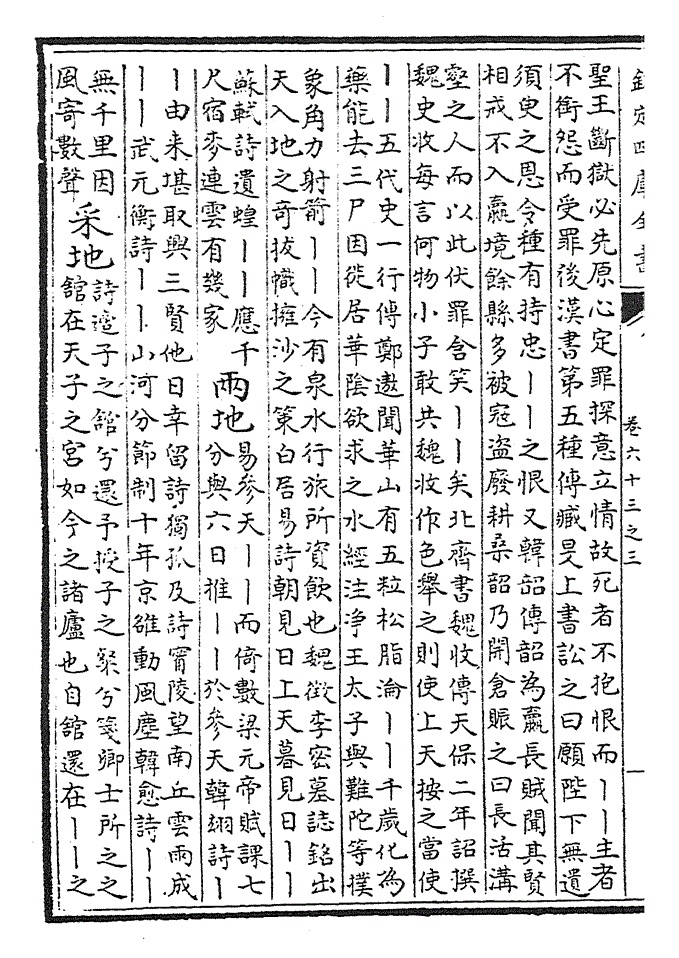 欽定四庫全書 卷六十三之三 一
聖王斷獄必先原心定罪探意立情故死者不抱恨而丨丨主者
不銜怨而受罪後漢書第五種傳臧旻上書訟之曰願陛下無遺
須臾之恩令種有持忠丨丨之恨又韓韶傳韶為嬴長賊聞其賢
相戒不入嬴境餘縣多被寇盜廢耕桑韶乃開倉賑之曰長活溝
壑之人而以此伏罪含笑丨丨矣北齊書魏收傳天保二年詔撰
魏史收每言何物小子敢共魏收作色舉之則使上天按之當使
丨丨五代史一行傳鄭遨聞華山有五粒松脂淪丨丨千歲化為
藥能去三尸因徙居華陰欲求之水經注淨王太子與難陀等撲
象角力射箭丨丨今有泉水行旅所資飲也魏徵李密墓誌銘出
天入地之奇拔幟擁沙之策白居易詩朝見日上天暮見日丨丨
蘇軾詩遺蝗丨丨應千
尺宿麥連雲有幾家
兩地
易參天丨丨而倚數梁元帝賦課七
分與六日推丨丨於參天韓翃詩丨
丨由来堪取興三賢他日幸留詩獨孤及詩甯陵望南丘雲雨成
丨丨武元衡詩丨丨山河分節制十年京雒動風塵韓愈詩丨丨
無千里因
風寄數聲
采地
詩適子之館兮還予授子之粲兮箋卿士所之之
館在天子之宮如今之諸廬也自館還在丨丨之